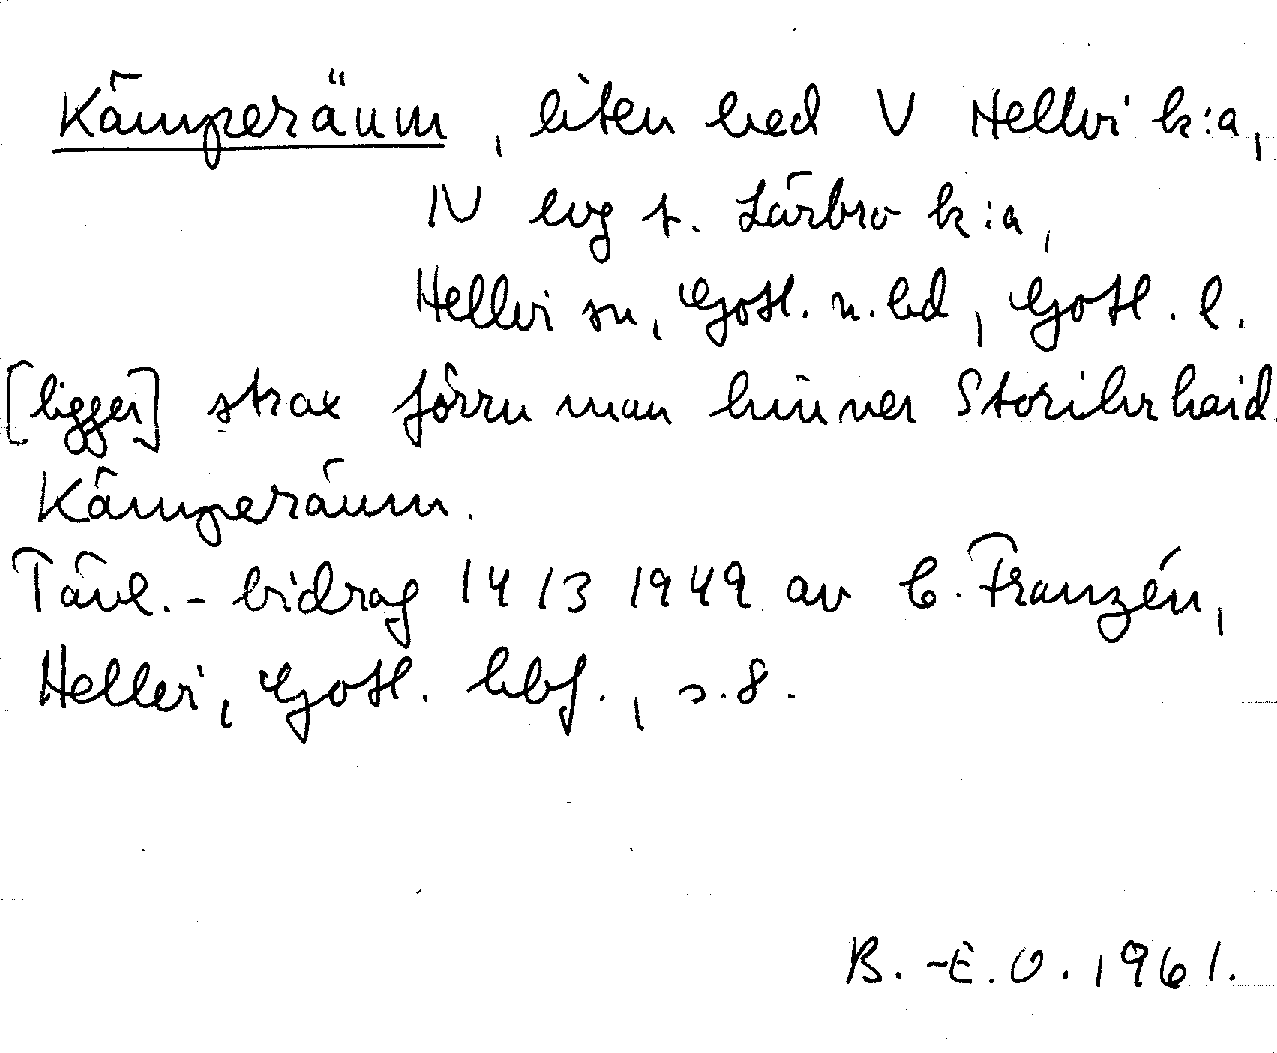 Kämperäum, liten hed V Hellvi k:a,
N lvg t. Lärbro k:a,
Hellvi sn, Gotl. n. hd, Gotl. l.
[ligger] strax förrn man hinner Storihrhaid.
Kämperäum.
Tävl.-bidrag 14/3 1949 av C. Franzén,
Hellvi, Gotl. hbf., s. 8.
B.-E.O. 1961.